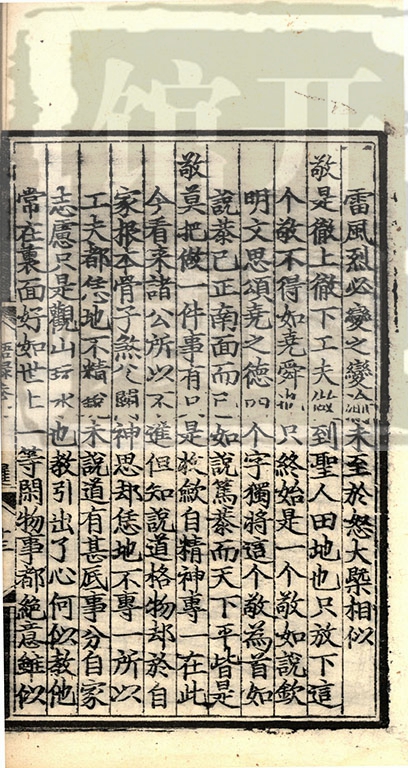 雷風烈必變之變亦未至於怒大槩相似
敬是徹上徹下工夫做到聖人田地也只放下這
个敬不得如堯舜也只終始是一个敬如說欽
明文思頌堯之德四个字獨將這个敬為首如
說恭己正南面而已如說篤恭而天下平皆是
敬莫把做一件事有只是收歛自精神專一在此
今看來諸公所以不進但知說道格物却於自
家根本骨子煞欠闕精神思却恁地不專一所以
工夫都恁地不精銳未說道有甚底事分自家
志慮只是觀山玩水也教引出了心何似教他
常在裏面好如世上一等閑物事都絕意雖似
語錄卷
十三
开馆